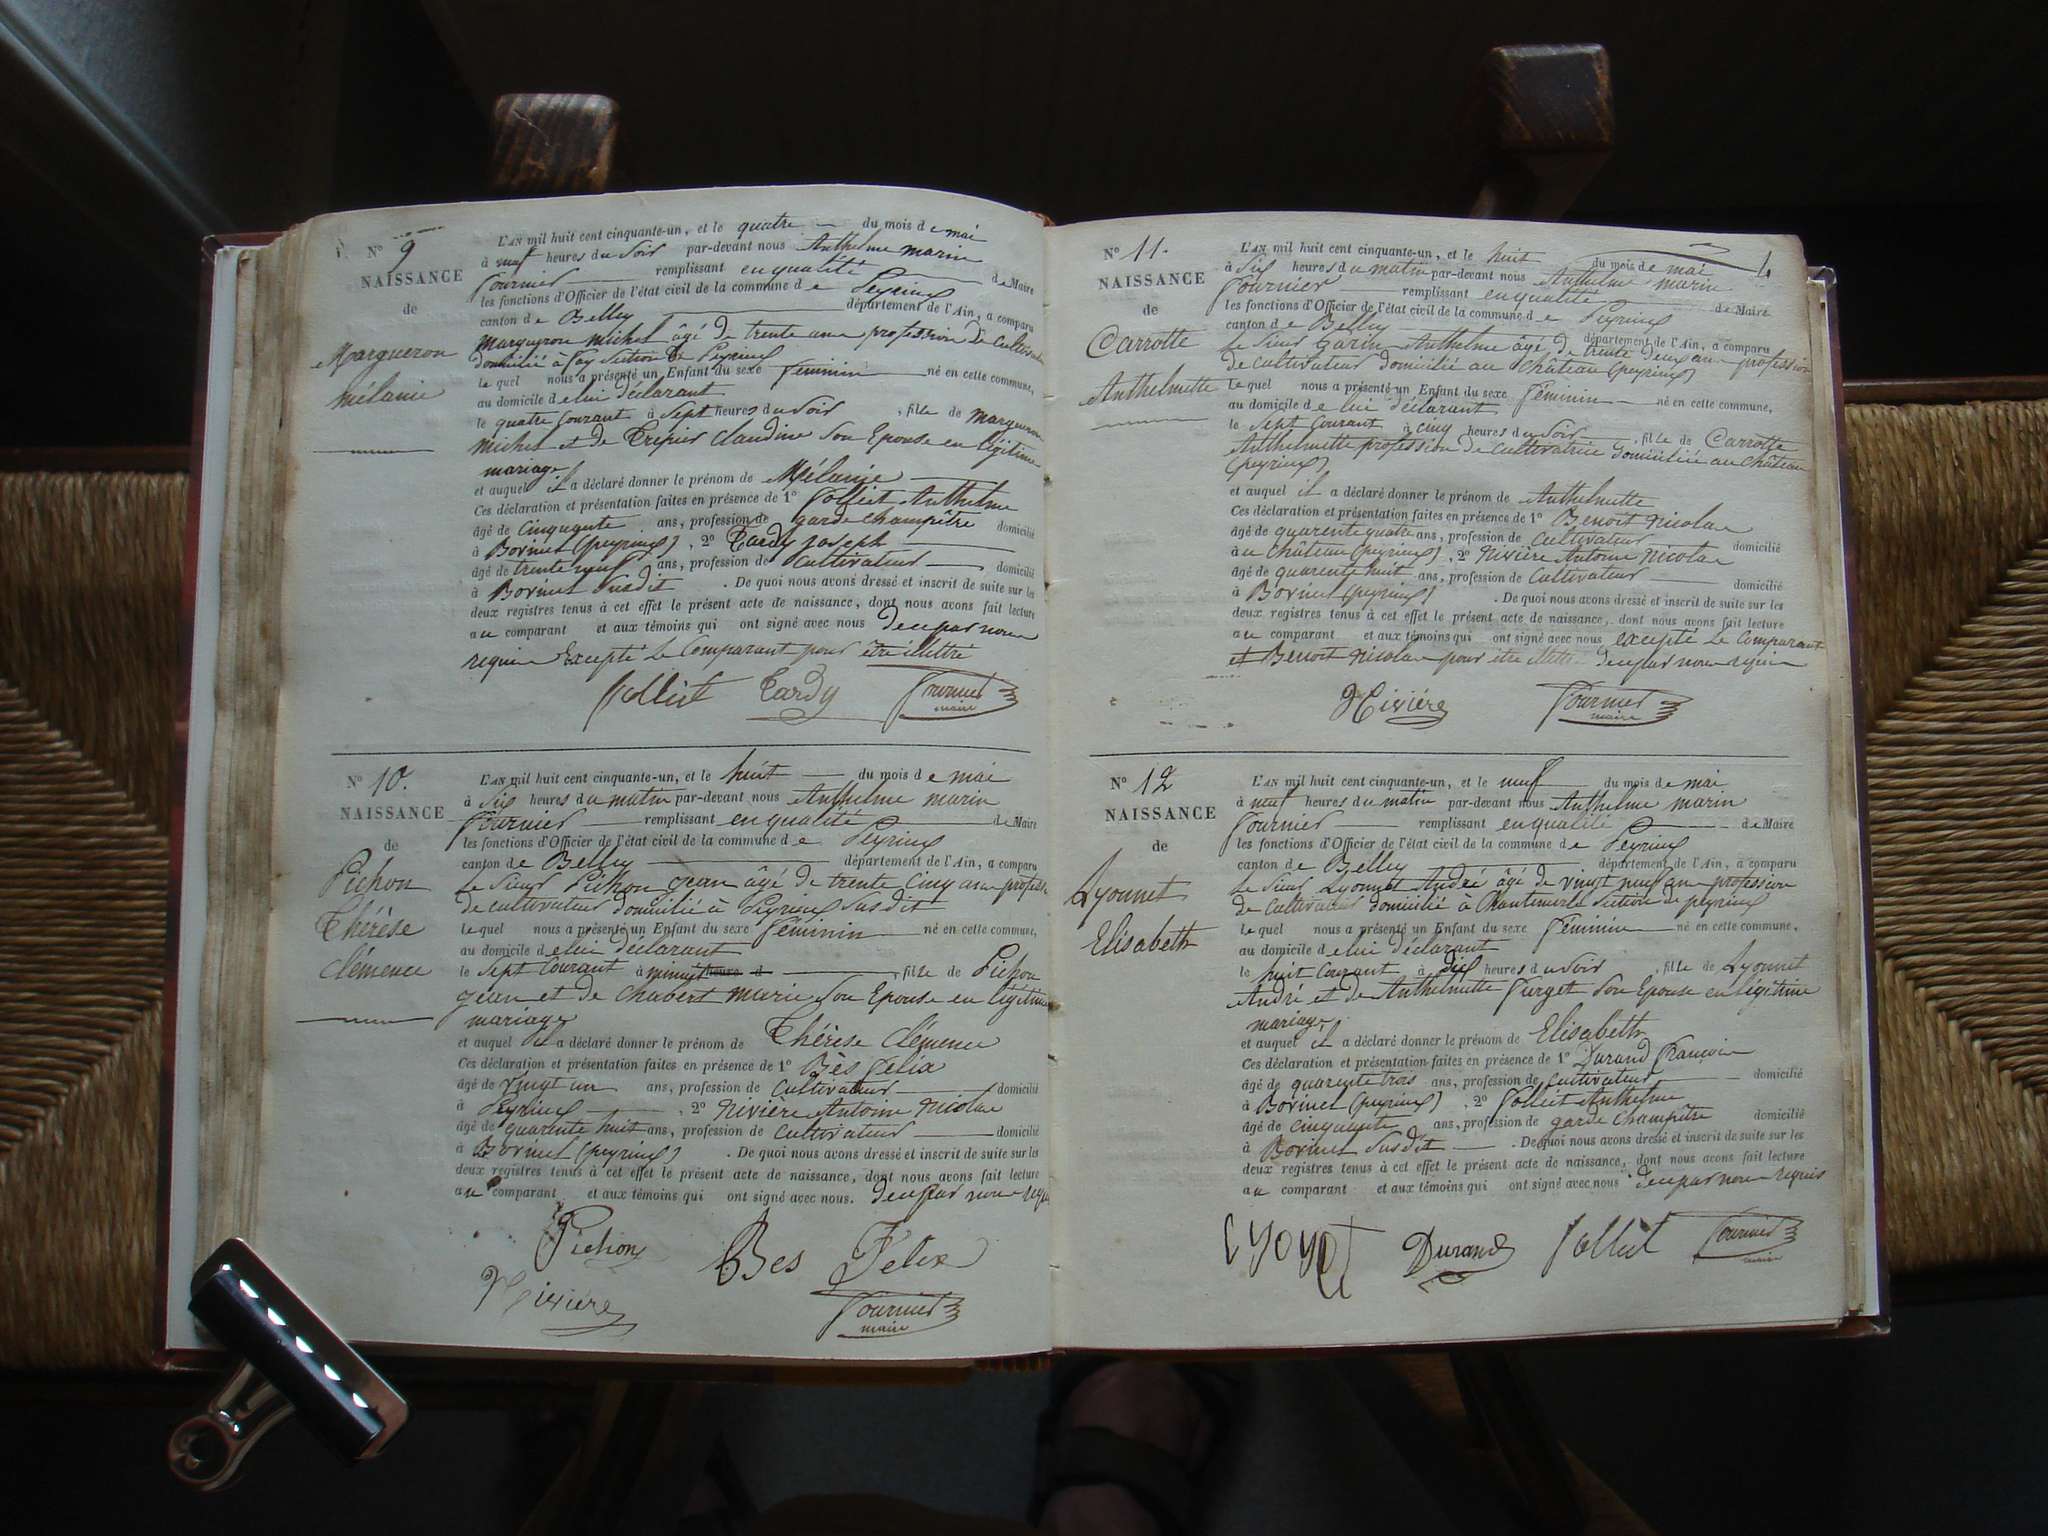 N° 9
NAISSANCE
de
Margueron
Mélanie
L'AN mil huit cent cinquante-un, et le quatre du mois de mai
à neuf heures du soir par-devant nous Anthelme marin
Fournier remplissant en qualité de Maire
les fonctions d'Officier de l'état civil de la commune de Peyrieux
canton de Belley département de l'Ain, a comparu
Margueron Michel âgé de trente ans profession de cultivateur
domicilié à Fay section de Peyrieux
lequel nous a présenté un Enfant du sexe féminin né en cette commune,
au domicile de lui déclarant
le quatre courant à sept heures du soir, fille de margueron
michel et de Trepier Claudine son Epouse en légitime
mariage
et auquel il a déclaré donner le prénom de Mélanie
Ces déclaration et présentation faites en présence de 1° Jolliet Anthelme
âgé de cinquante ans, profession de garde champêtre domicilié
à Borinet (peyrieux), 2° Tardy joseph
âgé de trente neuf ans, profession de cultivateur domicilié
à Borinet susdit. De quoi nous avons dressé et inscrit de suite sur les
deux registres tenus à cet effet le présent acte de naissance, dont nous avons fait lecture
au comparant et aux témoins qui ont signé avec nous de ce par nous
requis Excepté le Comparant pour être illettré
Jolliet Tardy Fournier
maire
N° 10.
NAISSANCE
de
Pichon
Thérèse
Clémence
L'AN mil huit cent cinquante-un, et le huit du mois de mai
à six heures du matin par-devant nous Anthelme marin
Fournier remplissant en qualité de Maire
les fonctions d'Officier de l'état civil de la commune de Peyrieux
canton de Belley département de l'Ain, a comparu
le sieur Pichon jean âgé de trente cinq ans profession
de cultivateur domicilié à Peyrieux susdit
lequel nous a présenté un Enfant du sexe féminin né en cette commune,
au domicile de lui déclarant
le sept courant à minuit heures d, fille de Pichon
jean et de Chabert marie son Epouse en légitime
mariage
et auquel il a déclaré donner le prénom de Thérèse Clémence
Ces déclaration et présentation faites en présence de 1° Bès felix
âgé de vingt un ans, profession de cultivateur domicilié
à Peyrieux, 2° Nivière Antoine Nicolas
âgé de quarente huit ans, profession de cultivateur domicilié
à Borinet (peyrieux). De quoi nous avons dressé et inscrit de suite sur les
deux registres tenus à cet effet le présent acte de naissance, dont nous avons fait lecture
au comparant et aux témoins qui ont signé avec nous. de ce par nous requis
Pichon Bes Felix
Nivière Fournier
maire
4
N° 11.
NAISSANCE
de
Carrotte
Anthelmette
L'AN mil huit cent cinquante-un, et le huit du mois de mai
à six heures du matin par-devant nous Anthelme marin
Fournier remplissant en qualité de Maire
les fonctions d'Officier de l'état civil de la commune de Peyrieux
canton de Belley département de l'Ain, a comparu
le sieur Garin Anthelme âgé de trente deux ans profession
de cultivateur domicilié au Château (peyrieux)
lequel nous a présenté un Enfant du sexe féminin né en cette commune,
au domicile de lui déclarant
le sept courant à cinq heures du soir, fille de Carrotte
Anthelmette profession de cultivatrice domiciliée au Château
(peyrieux)
et auquel il a déclaré donner le prénom de Anthelmette
Ces déclaration et présentation faites en présence de 1° Benoit Nicolas
âgé de quarente quatre ans, profession de cultivateur domicilié
à au Château (peyrieux), 2° Nivière Antoine Nicolas
âgé de quarente huit ans, profession de cultivateur domicilié
à Borinet (peyrieux). De quoi nous avons dressé et inscrit de suite sur les
deux registres tenus à cet effet le présent acte de naissance, dont nous avons fait lecture
au comparant et aux témoins qui ont signé avec nous excepté le comparant
et Benoit Nicolas pour être illettré de ce par nous requis
Nivière Fournier
maire
N° 12
NAISSANCE
de
Lyonnet
Elisabeth
L'AN mil huit cent cinquante-un, et le neuf du mois de mai
à neuf heures du matin par-devant nous Anthelme marin
Fournier remplissant en qualité de Maire
les fonctions d'Officier de l'état civil de la commune de Peyrieux
canton de Belley département de l'Ain, a comparu
le sieur Lyonnet André âgé de vingt neuf ans profession
de cultivateur domicilié à Chantemerle section de peyrieux
lequel nous a présenté un Enfant du sexe féminin né en cette commune,
au domicile de lui déclarant
le huit courant à dix heures du soir, fille de Lyonnet
André et de Anthelmette Furget son Epouse en légitime
mariage
et auquel il a déclaré donner le prénom de Elisabeth
Ces déclaration et présentation faites en présence de 1° Durand françois
âgé de quarente trois ans, profession de cultivateur domicilié
à Borinet (peyrieux), 2° Jolliet Anthelme
âgé de cinquante ans, profession de garde champêtre domicilié
à Borinet susdit. De quoi nous avons dressé et inscrit de suite sur les
deux registres tenus à cet effet le présent acte de naissance, dont nous avons fait lecture
au comparant et aux témoins qui ont signé avec nous de ce par nous requis
Durand Jolliet Fournier
maire